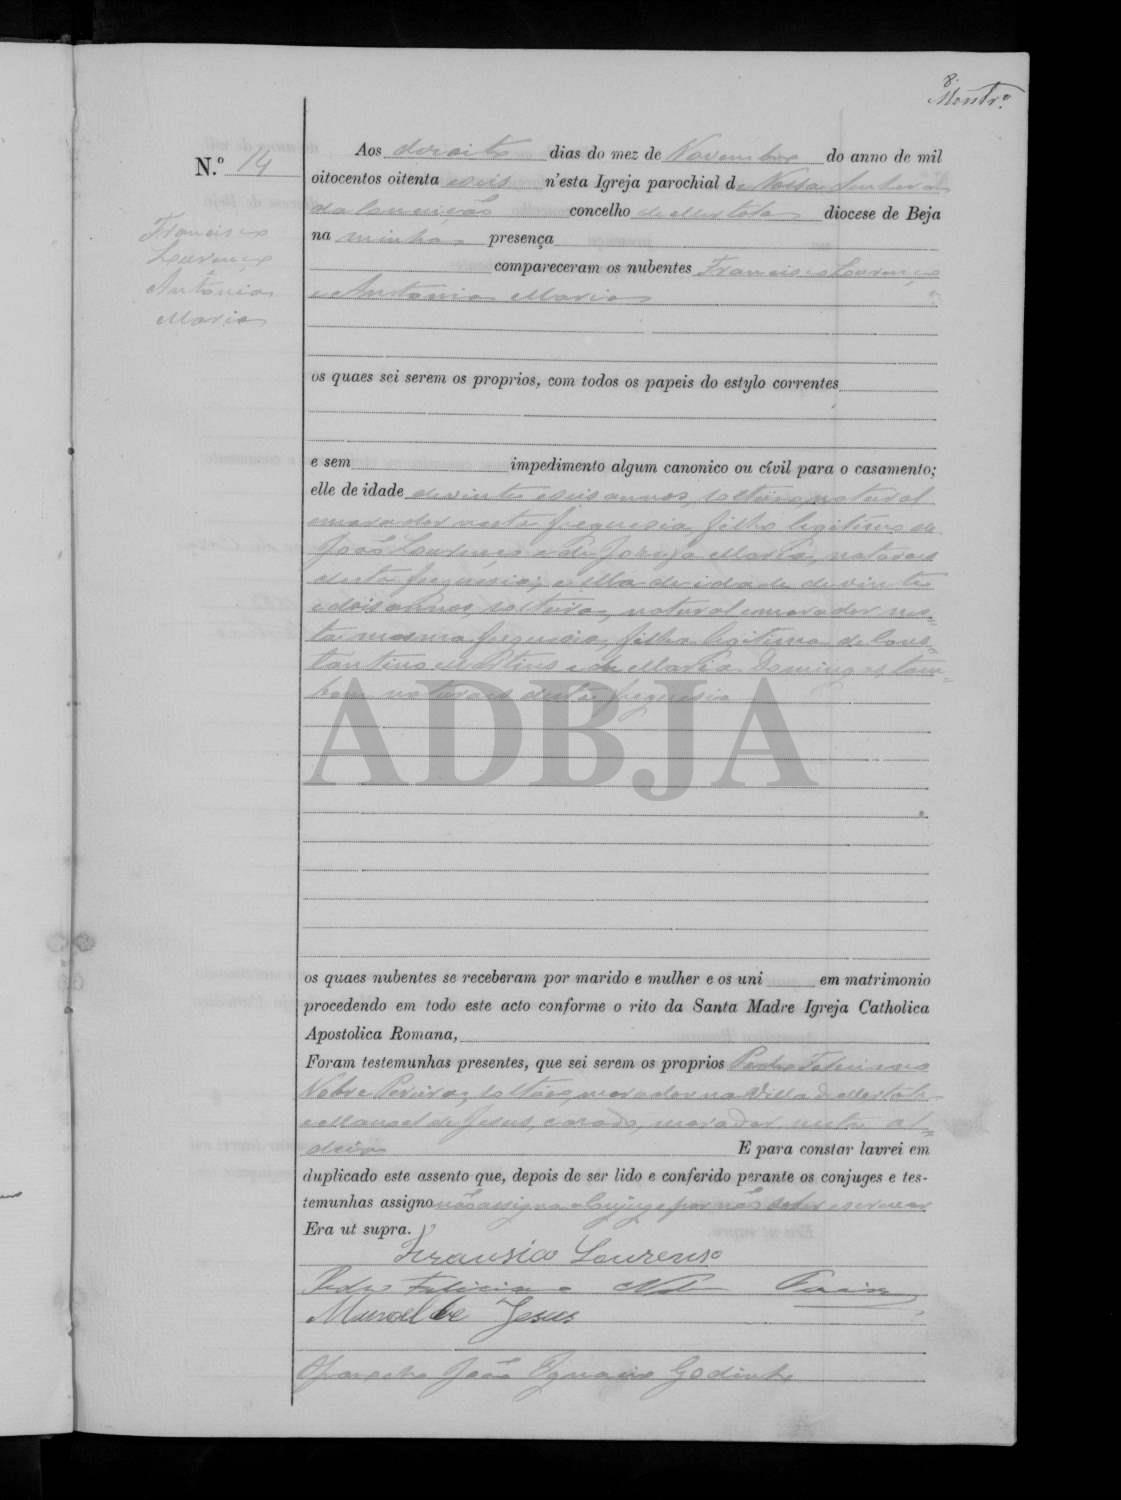 8.
Montrº.
N.º 14
Francisco
Lourenço
Antonia
Maria
Aos dezoito dias do mez de Novembro do anno de mil
oitocentos oitenta e seis n'esta Igreja parochial de Nossa Senhora
da Conceição concelho de Mertola diocese de Beja
na minha presença
compareceram os nubentes Francisco Lourenço
e Antonia Maria
os quaes sei serem os proprios, com todos os papeis do estylo correntes
e sem impedimento algum canonico ou cívil para o casamento;
elle de idade de vinte e seis annos, solteiro, natural
e morador nesta freguesia, filho legitimo de
João Lourenço e de Maria, naturaes
desta freguesia; e ella de idade de vinte
e dois annos, solteira, natural e morador nes=
ta mesma freguesia, filha legitima de Cons=
tantino Martins e de Maria Domingas, tam=
bem naturaes desta freguesia
ADBJA
os quaes nubentes se receberam por marido e mulher e os uni em matrimonio
procedendo em todo este acto conforme o rito da Santa Madre Igreja Catholica
Apostolica Romana,
Foram testemunhas presentes, que sei serem os proprios Pedro Feliciano
Nobre Pereira, solteiro, morador na Villa de Mertola
e Manoel de Jesus, casado, morador nesta al=
deia E para constar lavrei em
duplicado este assento que, depois de ser lido e conferido perante os conjuges e tes-
temunhas assigno não assigna a Conjuge por não saber escrever
Era ut supra.
Fransico Lourenso
Pedro Feliciano
Manoel de Jesus
O Parocho João Ignacio Godinho